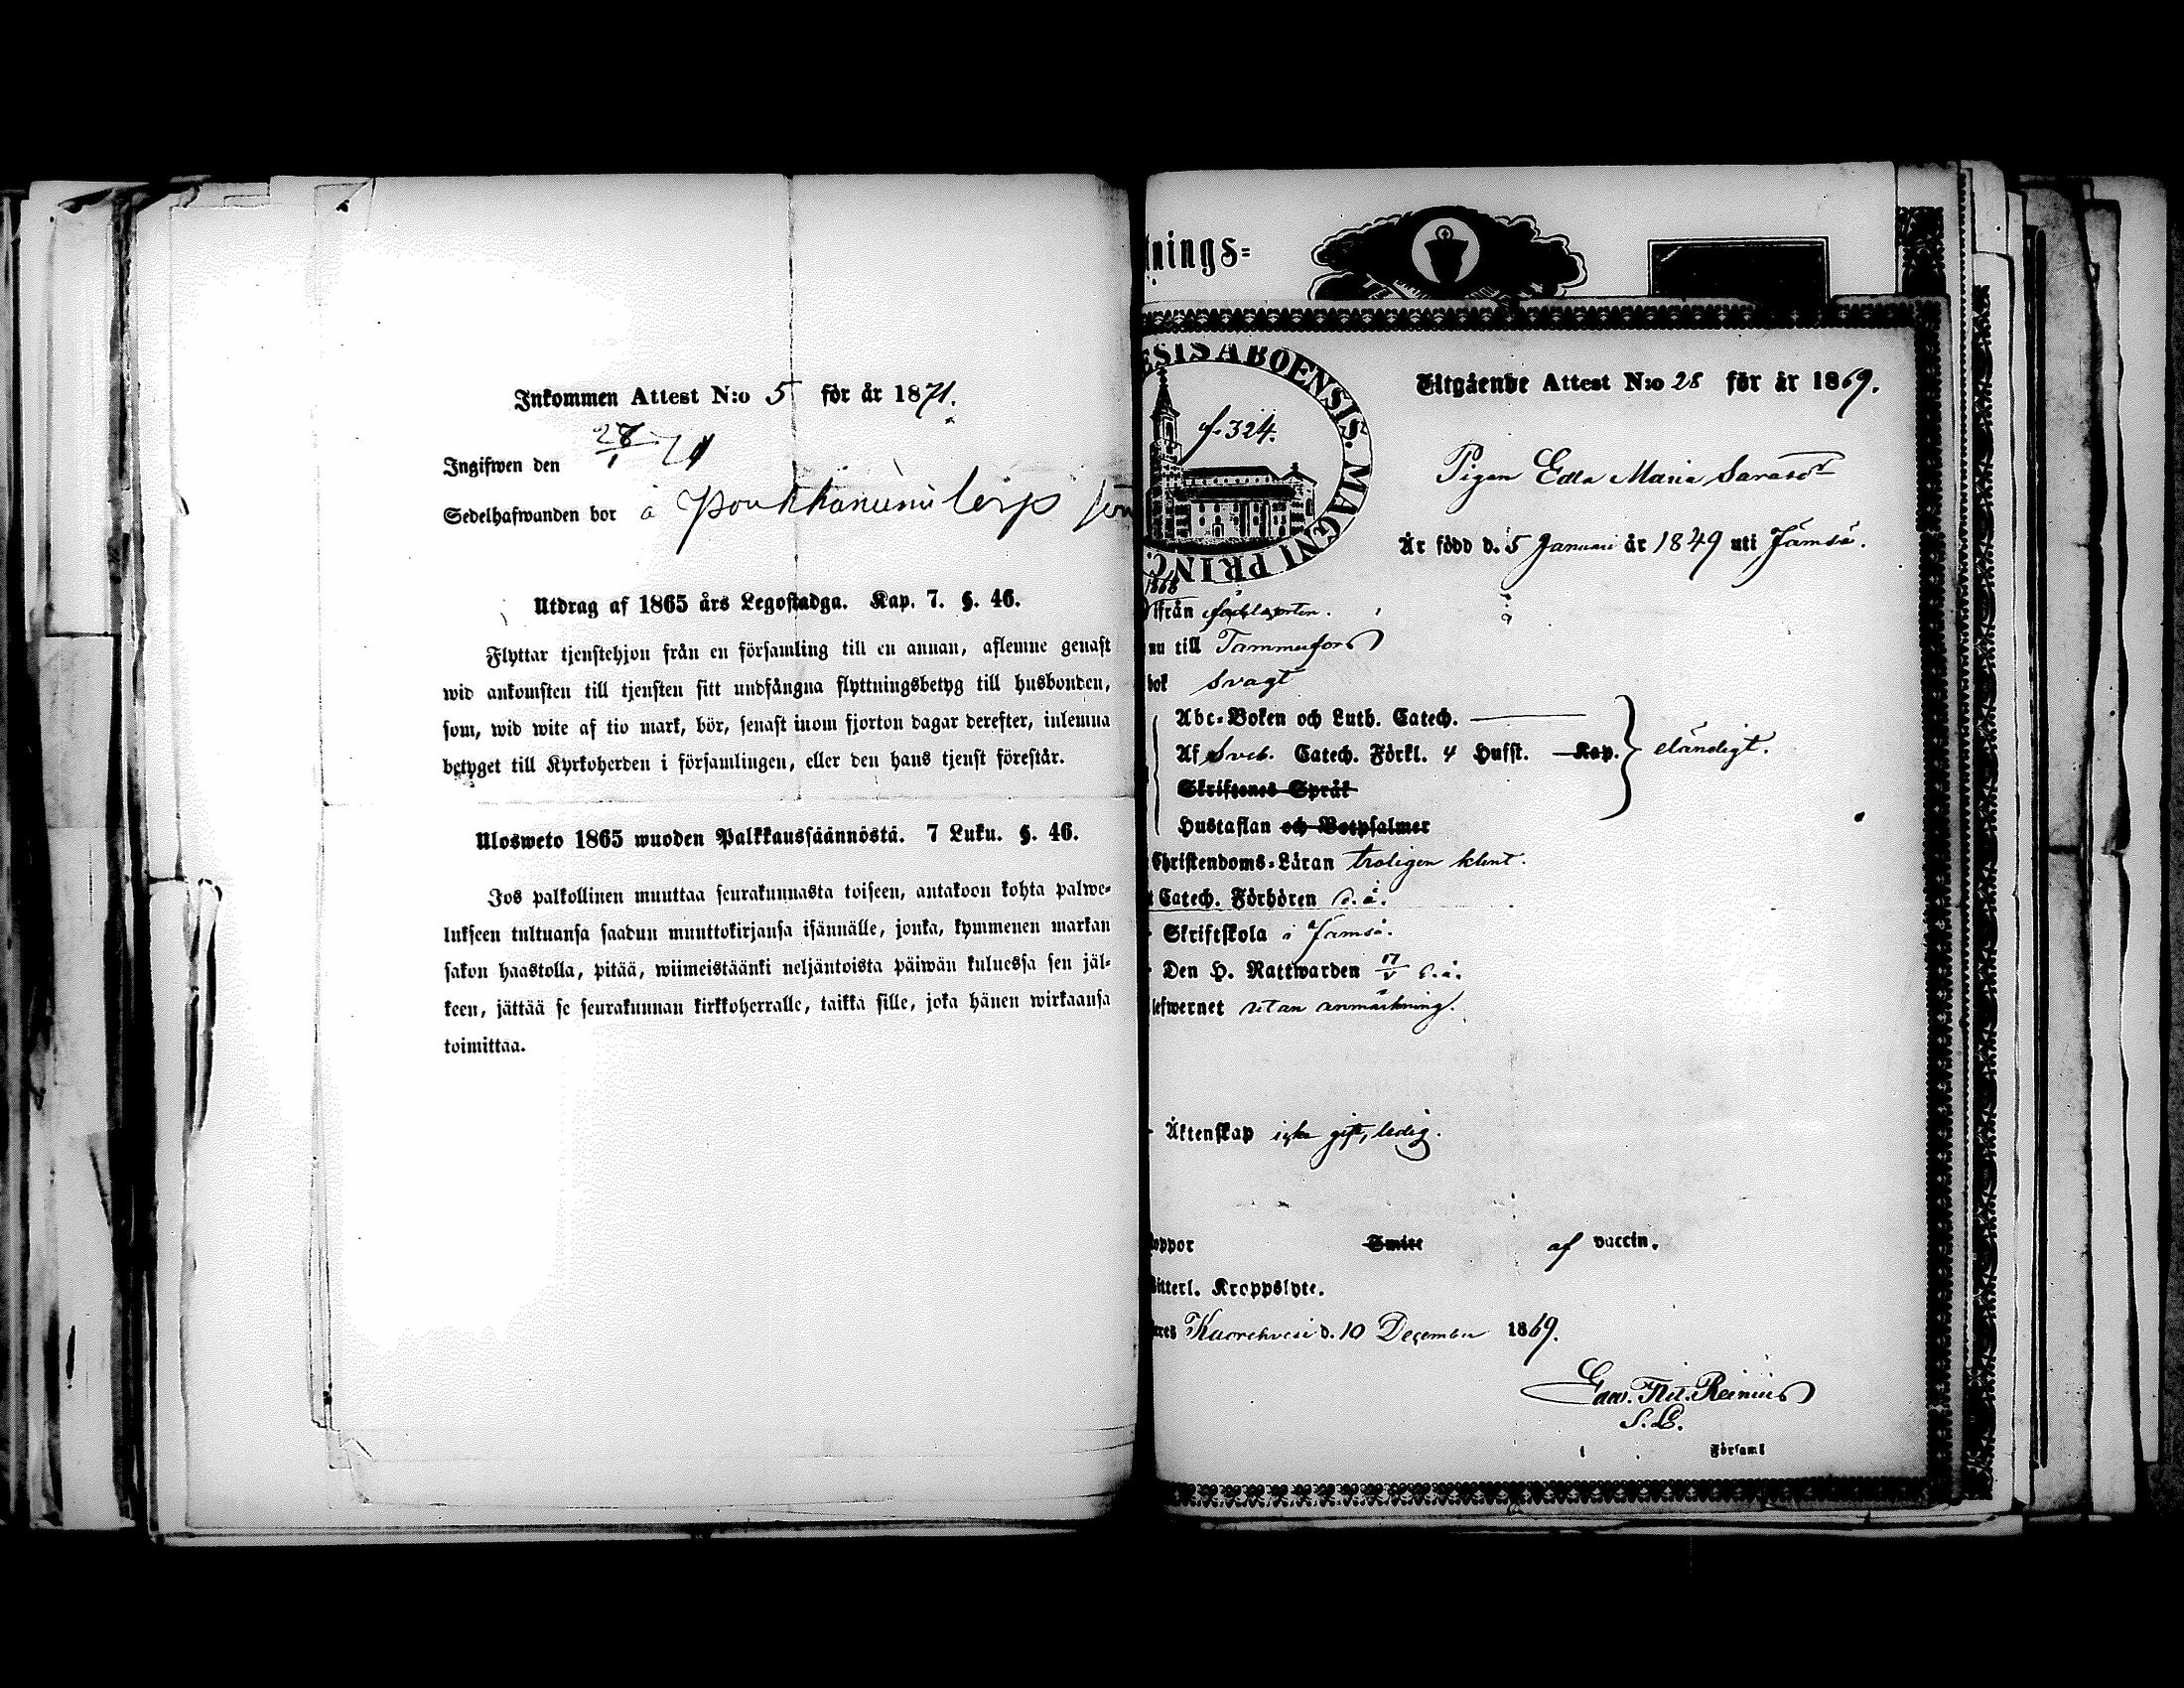 Inkommen Attest N:o 5 för år 1871.
Ingifwen den 28/1 71
Sedelhafwanden bor å
Utdrag af 1865 års Legostadga. Kap. 7. §. 46.
Flyttar tjenstehjon från en församling till en annan, aflemne genast
wid ankomsten till tjensten sitt undfångna flyttningsbetyg till husbonden,
som, wid wite af tio mark, bör, senast inom fjorton dagar derefter, inlemna
betyget till Kyrkoherden i församlingen, eller den hans tjenst förestår.
Ulosweto 1865 wuoden Palkkaussäännöstä. 7 Luku. §. 46.
Jos palkollinen muuttaa seurakunnasta toiseen, antakoon kohta palwe-
lukseen tultuansa saadun muuttokirjansa isännälle, jonka, kymmenen markan
sakon haastolla, pitää, wiimeistäänki neljäntoista päiwän kuluessa sen jäl-
keen, jättää se seurakunnan kirkkoherralle, taikka sille, joka hänen wirkaansa
toimittaa.
nings-
ESIS ABOENSIS. MAGNI PRINC.
f. 324.
Utgående Attest N:o 28 för år 1869.
Pigan Edla Maria
Är född d. 5 Januari år 1849 uti Jämsä.
1868
ifrån födelseorten.
nu till Tammerfors
bok svagt
Abc-Boken och Luth. Catech.
Af Sveb. Catech. Förkl. 4 Hufst. Kap. eländigt.
Skriftenes Språk
Hustaflan och Botpsalmer
Christendoms-Läran troligen klent.
Catech. Förhören d. å.
Skriftskola i Jämsä.
Den H. Nattwarden d. å.
lefwernet utan anmärkning.
Äktenskap icke gift, ledig.
koppor Smitt af vaccin.
Witterl. Kroppslyte.
Kuorehvesi d. 10 December 1869.
Reinius
Församl